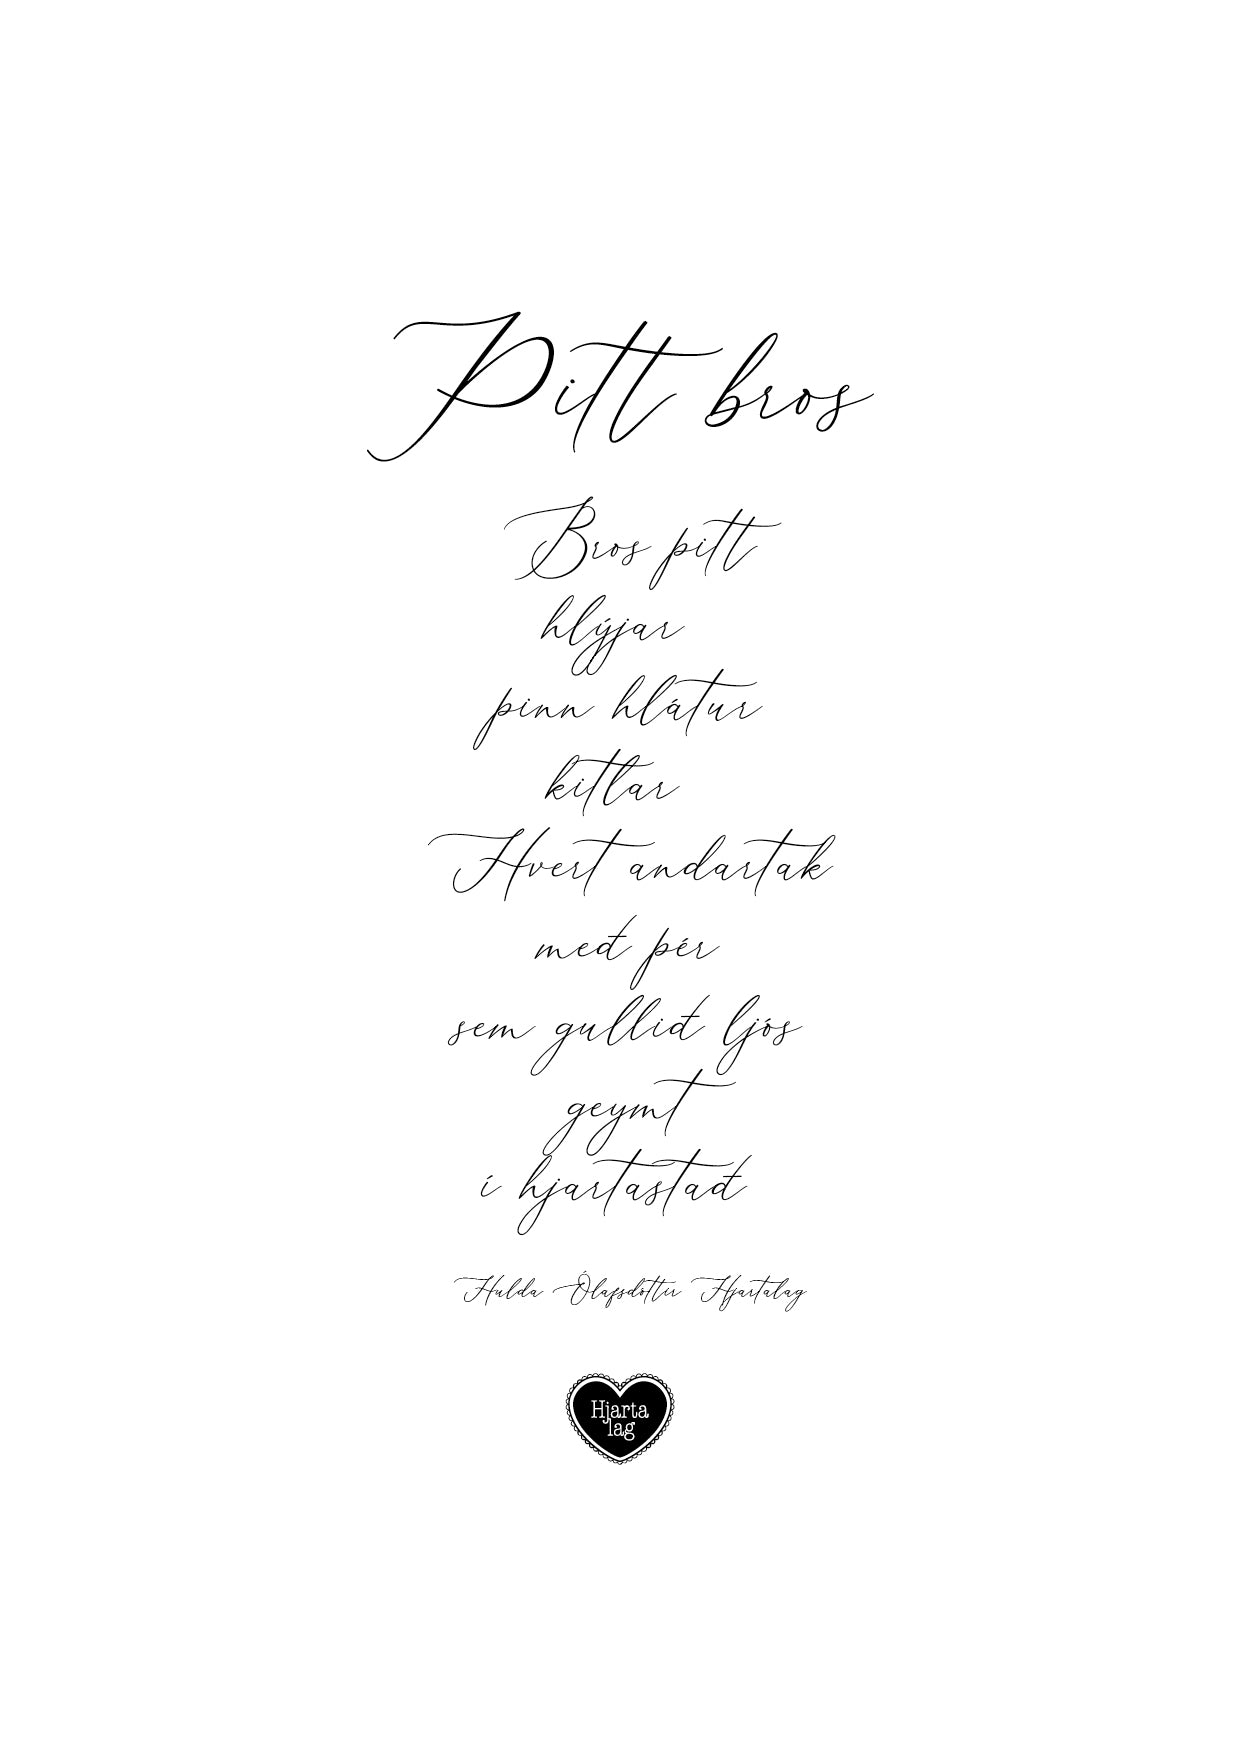 Þitt bros
Bros þitt
hlýjar
þinn hlátur
kitlar
Hvert andartak
með þér
sem gullið ljós
geymt
í hjartastað
Hulda Ólafsdóttir Hjartalag
Hjarta
lag